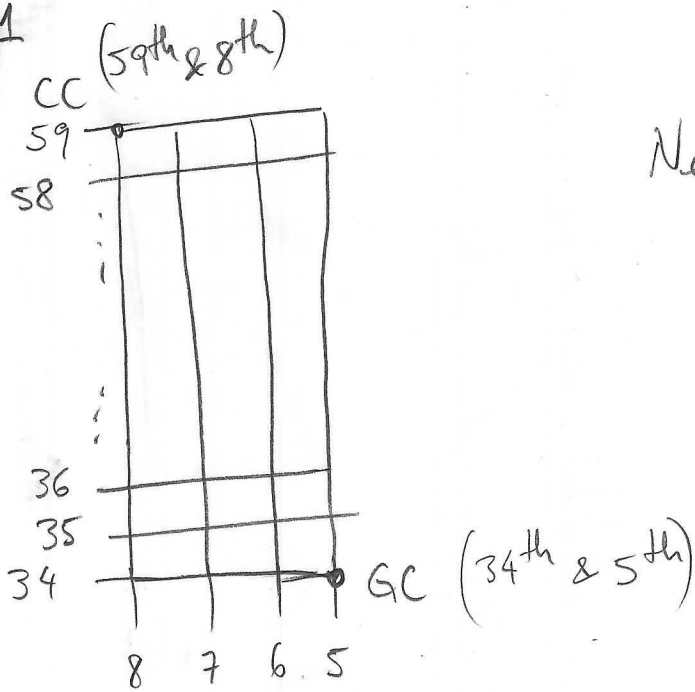 1
(59th & 8th)
CC
59
58
36
35
34
GC (34th & 5th)
8 7 6 5